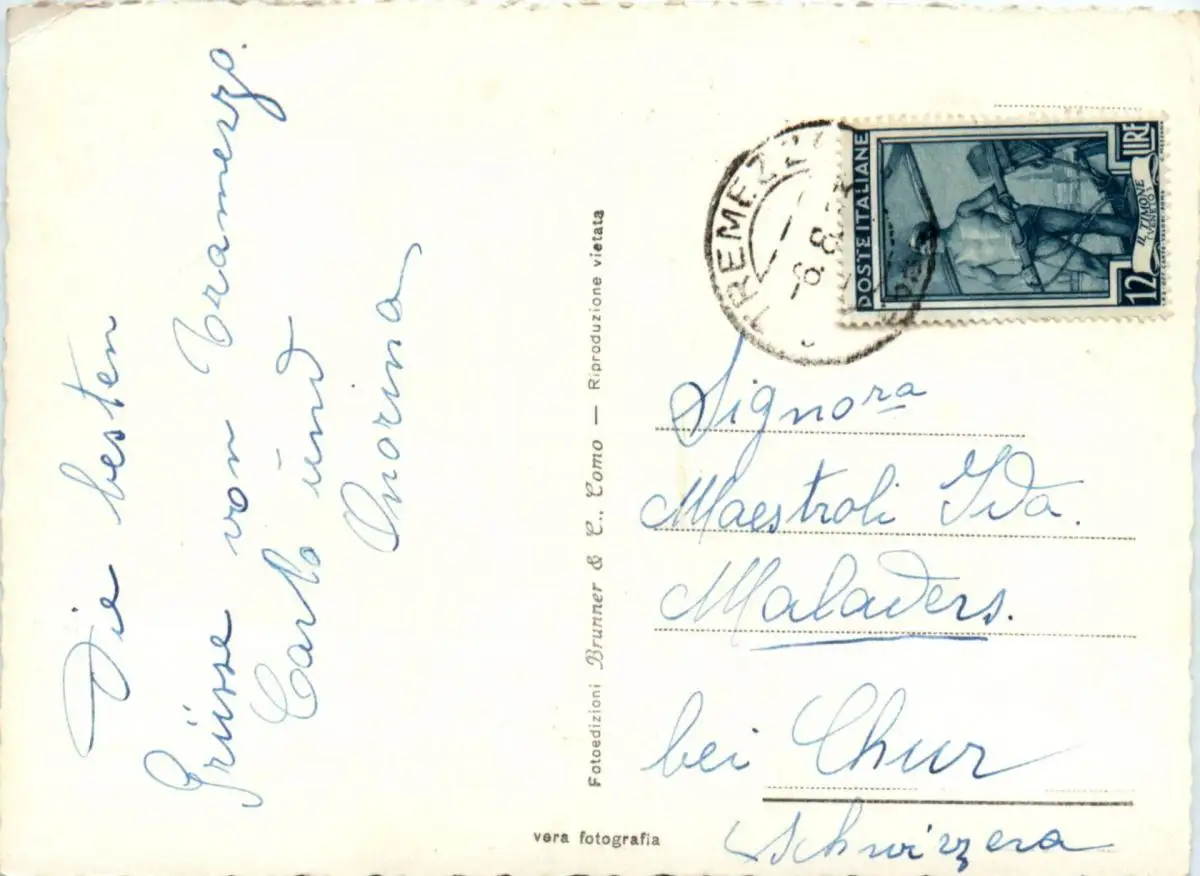 Die besten
Grüsse von Tramezzo.
Carlo und
Fotoedizioni Brunner & C., Como — Riproduzione vietata
vera fotografia
TREMEZZO
6.8.
POSTE ITALIANE
LIRE
IL TIMONE
(VENETO)
12
Signora
Maestroli Ida.
Maladers.
bei Chur
Schwizzera